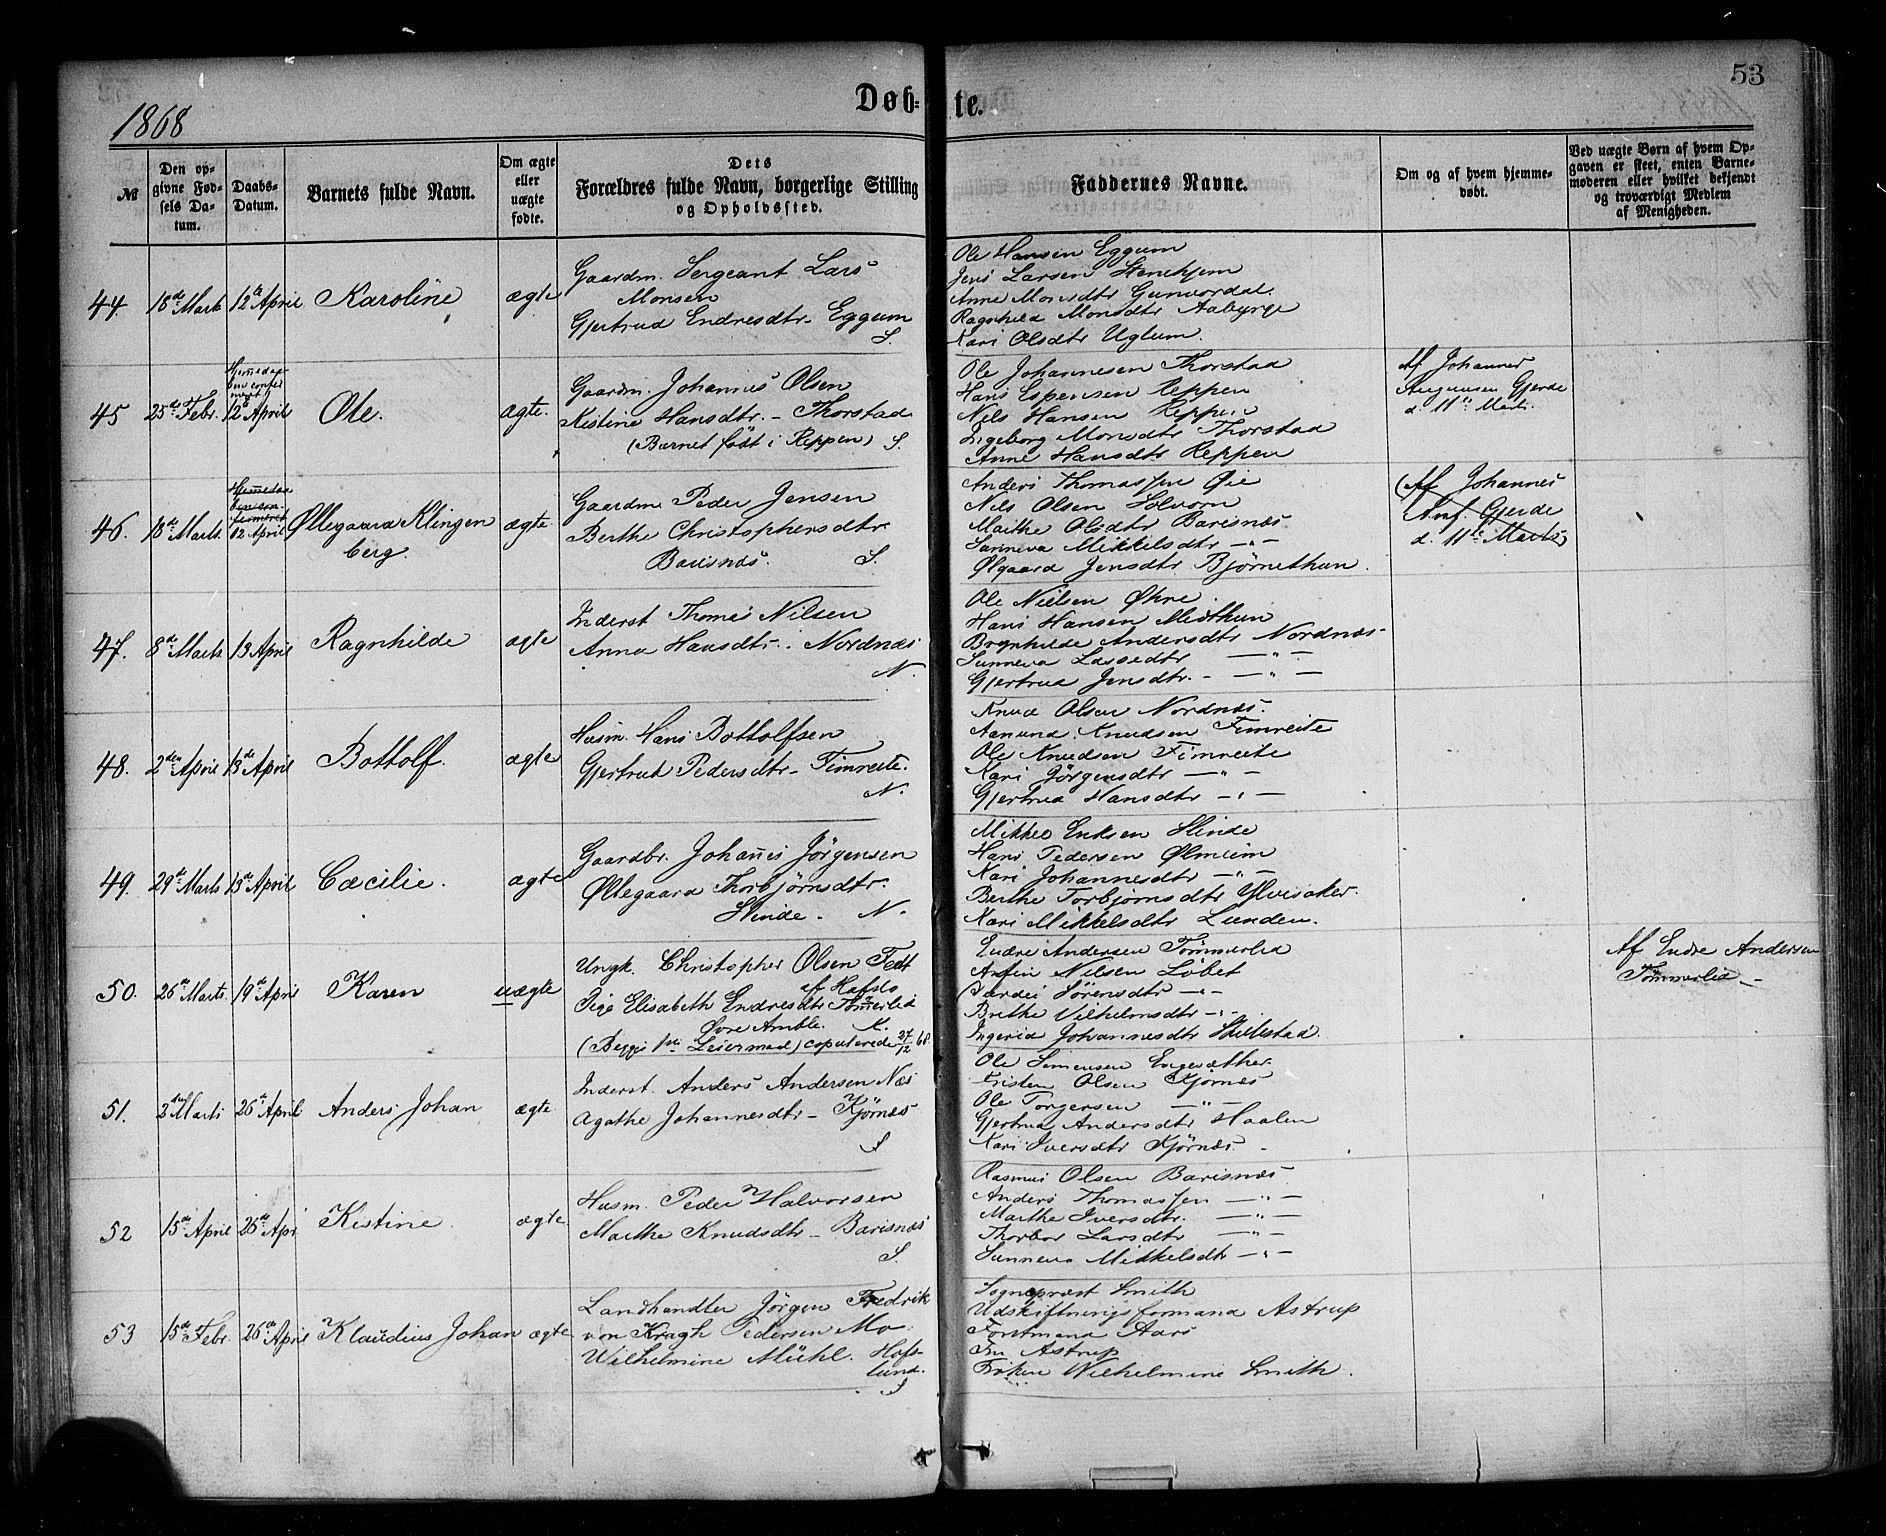 53
1868
Døb=te.
№
Den opgivne Fødsels Datum.
Daabs-Datum.
Barnets fulde Navn.
Om ægte eller uægte fødte.
Dets Forældres fulde Navn, borgerlige Stilling og Opholdssted.
Faddernes Navne.
Om og af hvem hjemmedøbt.
Ved uægte Børn af hvem Opgaven er skeet, enten Barnemoderen eller hvilket bekjendt og troværdigt Medlem af Menigheden.
44. 18de Marts 12te April Karoline ægte
Gaardm. Sergeant Lars
Monsen
Gjertrud Endresdtr. Eggum
S.
Ole Hansen Eggum
Jens Larsen Stenehjem
Anne Monsdtr Gunvordal.
Ragnhild Monsdtr Aabyrge
Kari Olsdtr Uglum.
45 25de Febr. 12te April Ole. ægte.
Gaardm. Johannes Olsen
Kistine Hansdtr. - Thorstad
(Barnet født i Reppen) S.
Ole Johannesen Thorstad
Hans Espensen Reppen
Nils Hansen Reppen
Ingeborg Monsdtr Thorstad
Anne Hansdtr Reppen
Af Johannes
Gjerde
d. 11te Marts.
46. 18de Marts. 12 April Øllegaard Klingen
berg. ægte
Gaardm Peder Jensen
Berthe Christophersdtr
Barsnes. S.
Anders Thomassen Øie
Nils Olsen Solvorn
Marthe Olsdtr Barsnes
Sunneva Mikkelsdtr -"-
Ølgaard Jensdtr Bjørnethun.
(Af Johannes
Anf. Gjerde
d. 11te Marts)
47. 8de Marts 13 April Ragnhilde ægte
Inderst Thomes Nilsen
Anna Hansdtr. Nordnes
N.
Ole Nielsen Økre.
Hans Hansen Midthun
Brynhilde Andersdtr Nordnæs
Sunneva Lassedtr -"-
Gjertrud Jensdtr. - -"-
48. 2den April 13de April Bottolf. ægte
Husm. Hans Bottolfsen
Gjertrud Pedersdtr - Fimreite.
N.
Knud Olsen Nordnæs.
Aamund Knudsen Fimreite
Ole Knudsen Fimreite
Kari Jørgensdtr -"-
Gjertrud Hansdtr -"-
49. 29de Marts 13de April Cæcilie. ægte
Gaardbr. Johanes Jørgensen
Øllegaard Thorbjørnsdtr.
Slinde. N.
Mikkel Eriksen Slinde
Hans Pedersen Ølmeim
Kari Johannesdtr -"-
Berthe Torbjørnsdtr Ylvisaker.
Kari Mikkelsdtr Lunden.
50. 26de Marts. 19de April Karen uægte
Ungk. Christopher Olsen Fedt
af Hafslo
Pige Elisabeth Endresdtr Tømmerlid
Øvre Amble. K.
(Begges 1ste Leiermaal) copulerede 27/12 68.
Endre Andersen Tømmerlid
Anfin Nilsen Løbet
Sørensdtr -"-
Brithe Vilhelmsdtr -"-
Ingerid Johannesdtr Skillestad.
Af Endre Andersen
Tømmerlid -
51. 2den Marts 26de April Anders Johan ægte
Inderst. Anders Andersen Næs
Agathe Johannesdtr - Kjørnæs
S
Ole Simensen Engesæther.
Kristen Olsen Kjørnæs
Ole Torgersen -"-
Gjertrud Andersdtr Haalen
Kari Iversdtr Kjørnæs. -
52 15de April 26de Apr Kistine. ægte
Husm. Peder Halvorsen
Marthe Knudsdtr - Barsnæs
S.
Rasmus Olsen Barsnæs
Anders Thomassen -"-
Marthe Iversdtr. -"-
Thorbor Larsdtr -"-
Sunneva Mikkelsdtr -"-
53 15de Febr. 26de April Klaudius Johan ægte
Landhandler Jørgen Fredrik
von Kragh Pedersen Mo.
Wilhelmine Mühl. Hofs-
lund.
S
Sognepræst Smith
Udskiftningsformand Astrup
Forstmand Aars
Fru Astrup
Frøken Wilhelmine Smith.